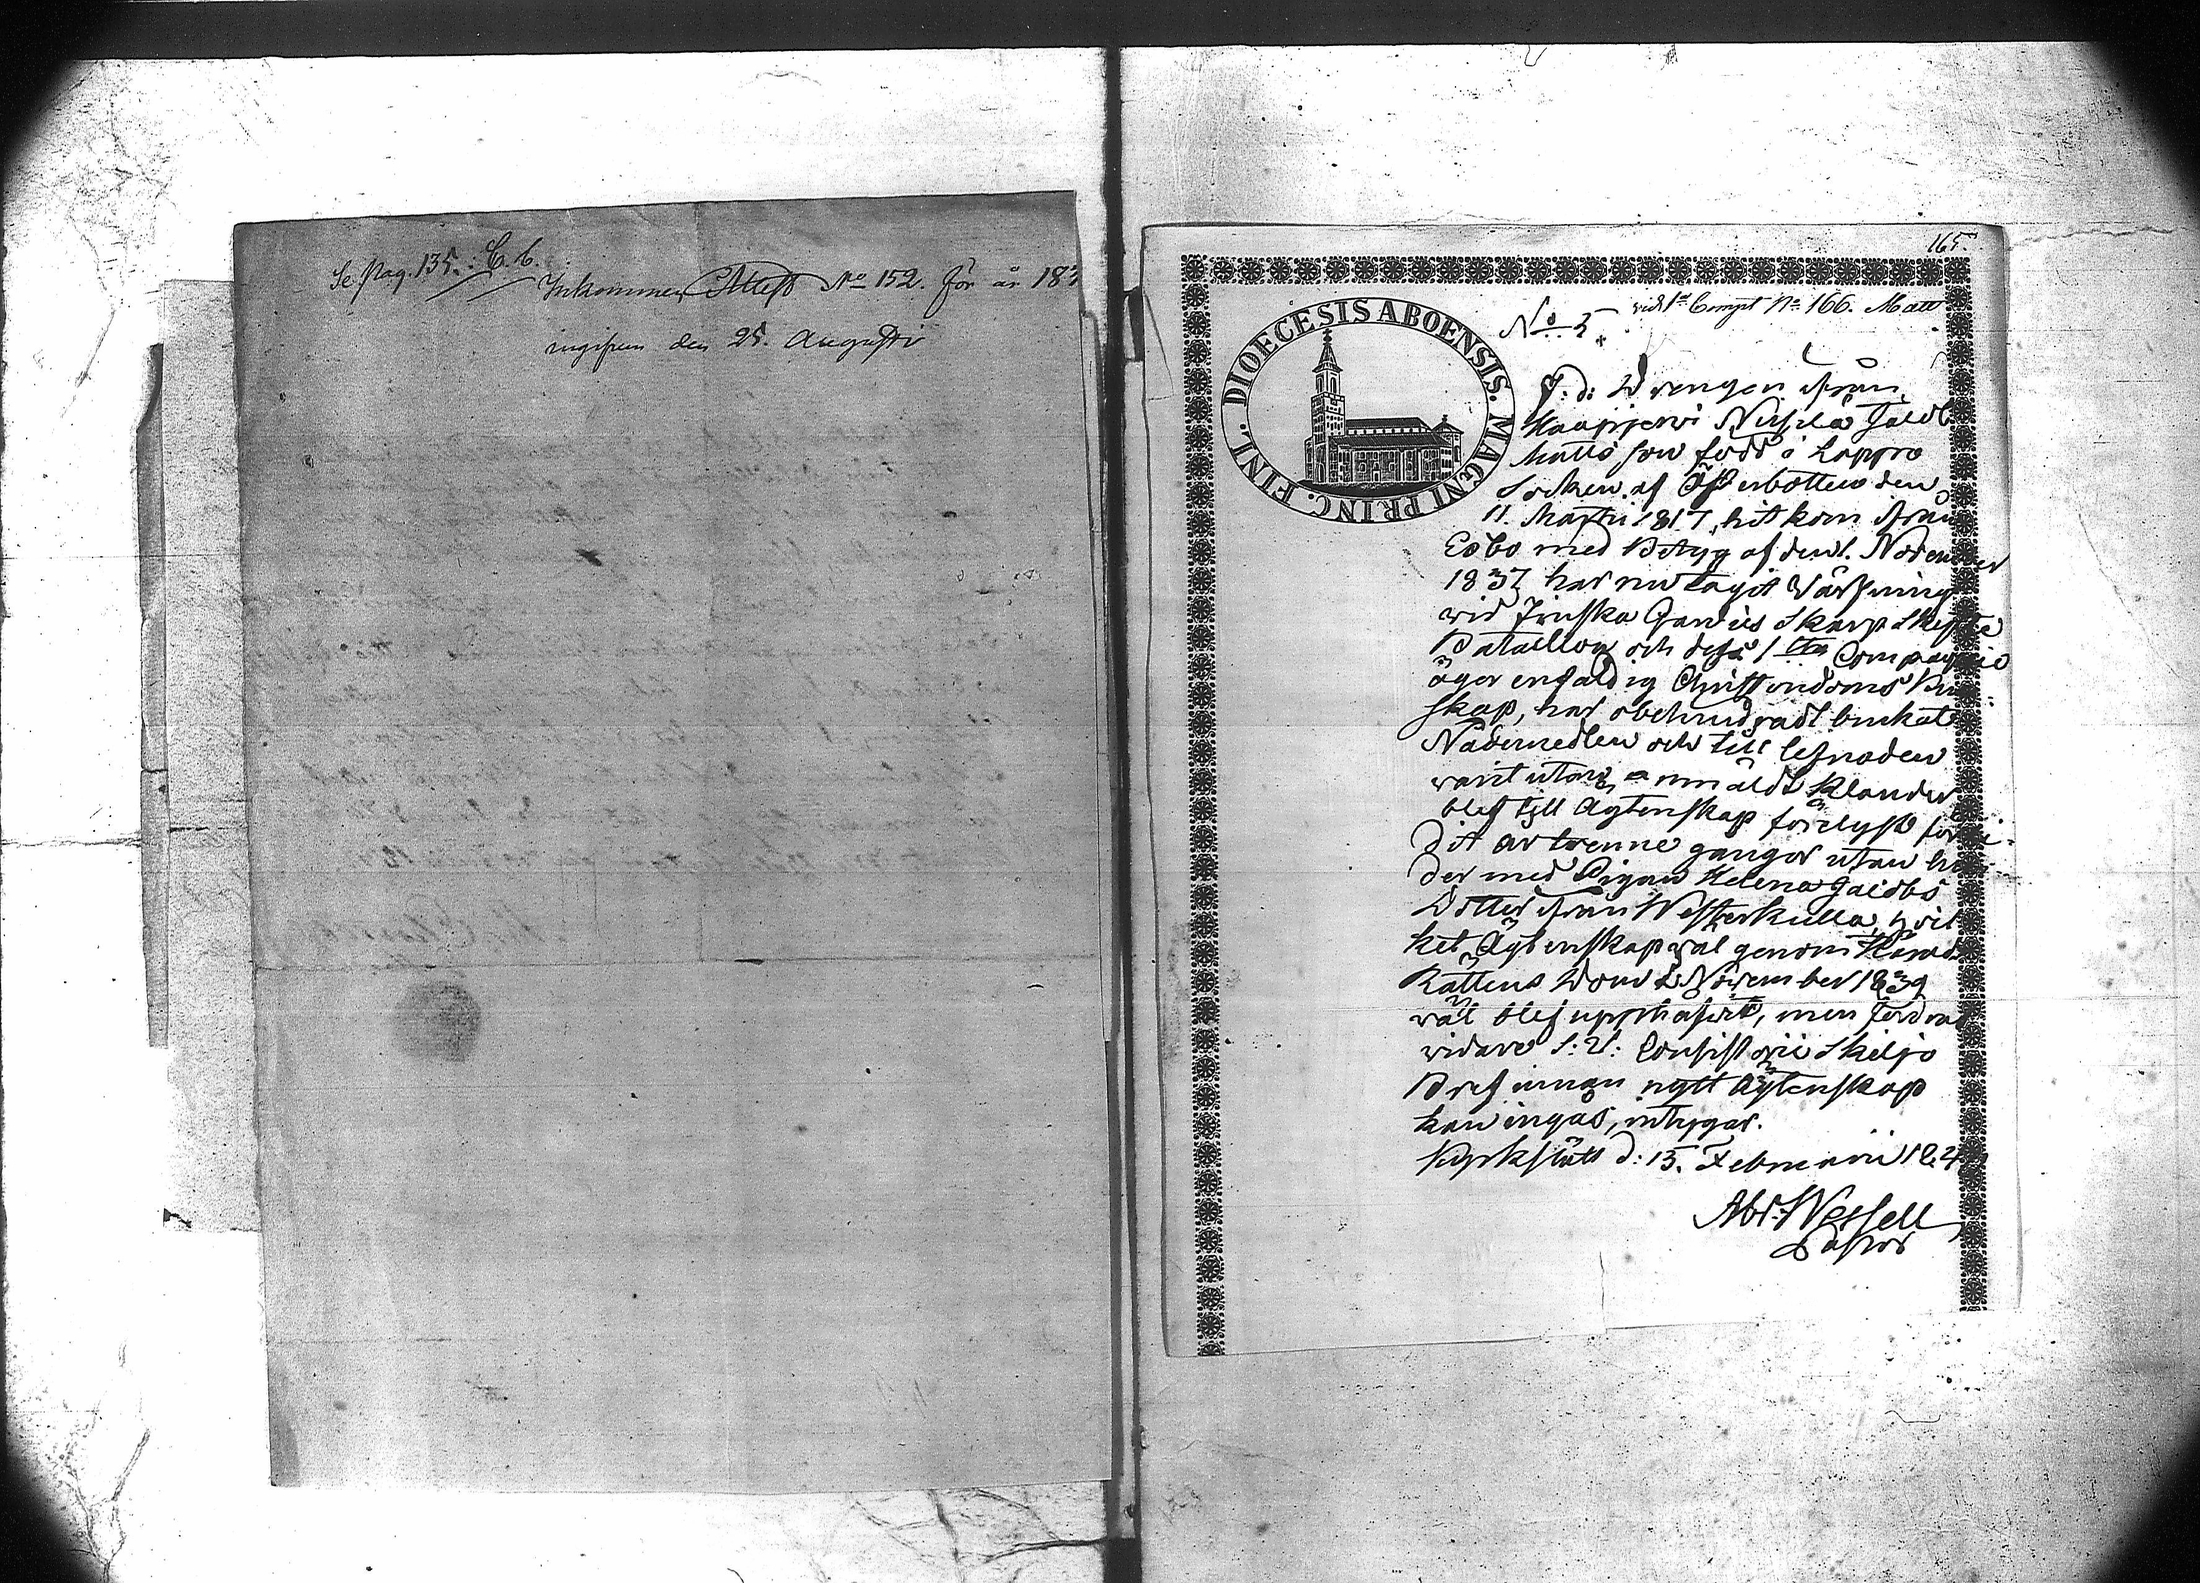 Se Pag. 135. C. b.
Inkommen Attest No 152. för år 183
ingifven den 25. Augusti
165.
DIOECESIS ABOENSIS. MAGNI PRINC. FINL.
No 5. vid 1sta Compt No 166. Matt
F. d: Drengen ifrån
Kaapjerwi Nissila Jacob
Matts son född i Lappo
Socken af Österbotten den
11. Martii 1817, hit kom ifrån
Esbo med Betyg af den 1. November
1837 har nu tagit Värfning
wid Finska Gardes Skarpskytte
Bataillon och dess 1sta Compagnie
äger enfaldig Christendoms Kun
skap, har obehindradt brukat
Nådemedlen och till lefnaden
varit utan anmäldt klander
blef till Ägtenskap förelyst förli
dit år trenne gånger utan hin
der med Pigan Helena Jacobs
Dotter ifrån Westerkulla, hvil
ket Ägtenskap väl genom Härads
Rättens Dom i November 1839
väl blef upphäfvit, men fordras
vidare S: V: Consistorii Skiljo
Bref innan nytt Ägtenskap
kan ingås, intygar.
Kyrkslätt d: 15. Februarii 184
Abr. Wessell
Pastor